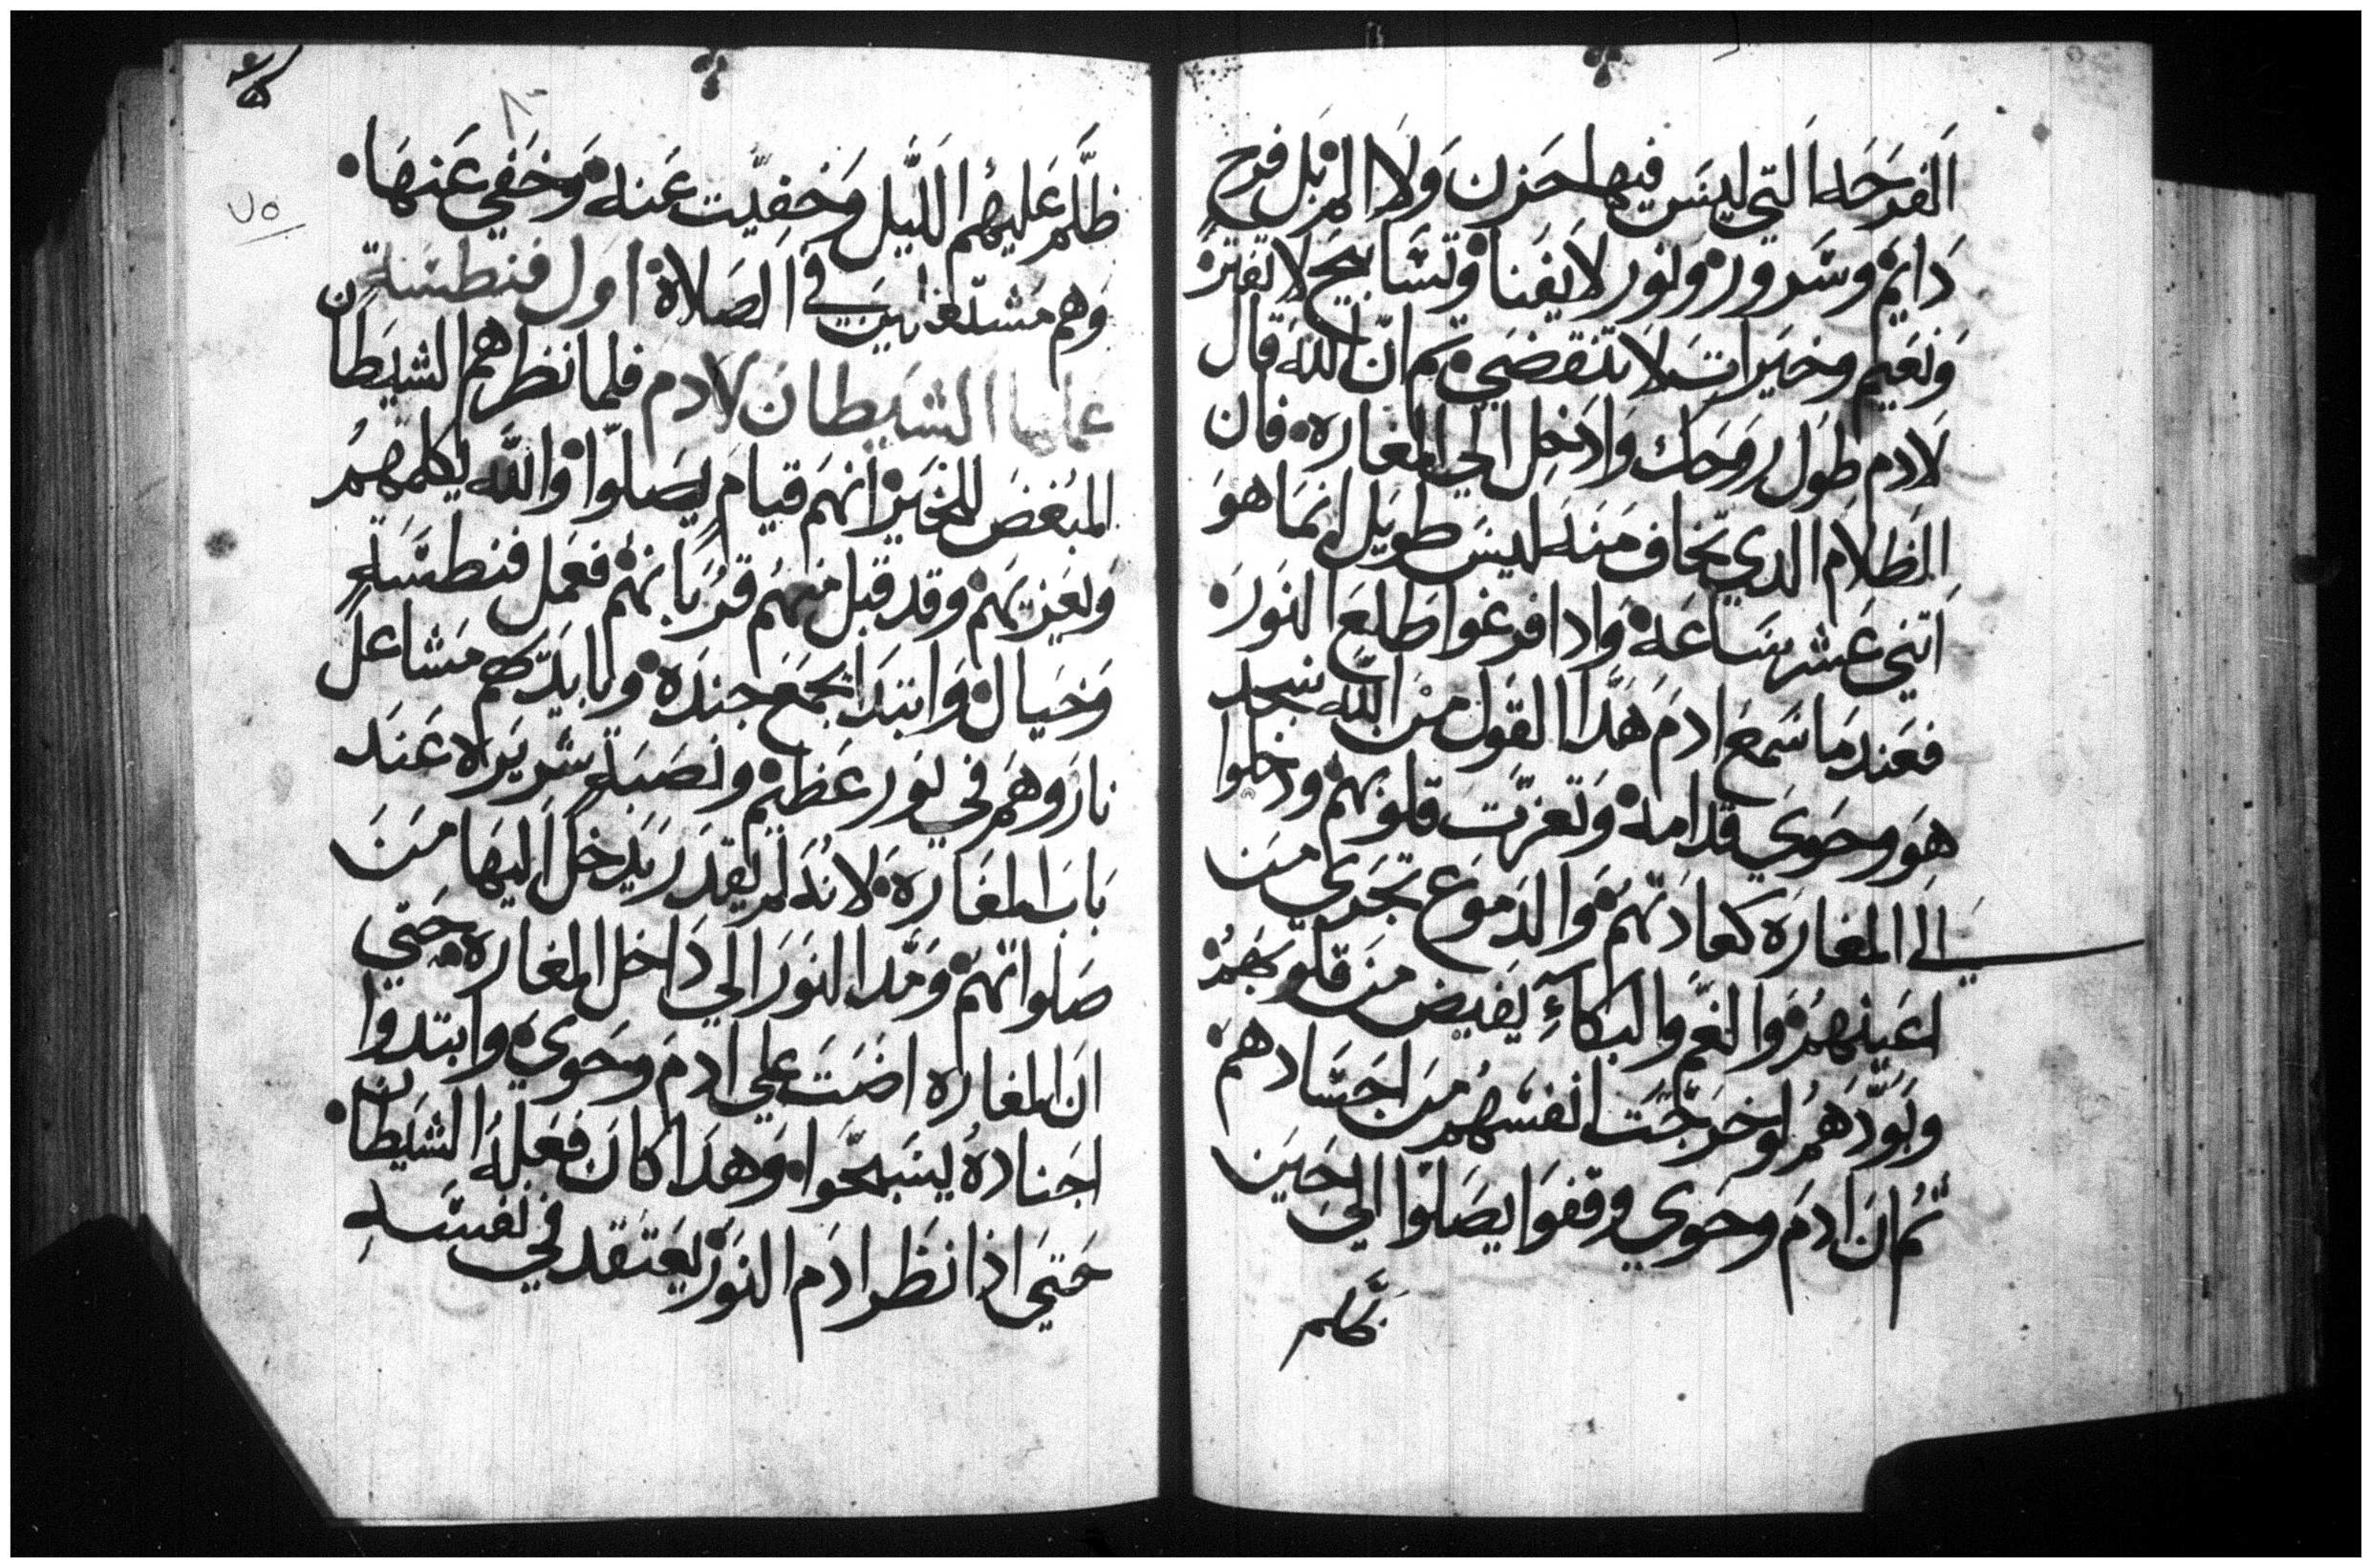 الفرحه التي ليس فيها حزن ولا الم بل فرح
دايم وسرور ونور لا يفنا وتسابيح لا تفتر
ونعيم وخيرات لا تنقضي ثم ان الله قال
لادم طول روحك وادخل الي المغاره فان
الظلام الدي تخاف منه ليس طويل انما هو
اتني عشر ساعه وادا فرغوا طلع النور
فعند ما سمع ادم هدا القول من الله سجد
هو وحوي قدامه وتعزت قلوبهم ودخلوا
الي المغاره كعادتهم والدموع تجري من
اعينهم والغم والبكاء يفيض من قلوبهم
وبودهم لو خرجت انفسهم من اجسادهم
ثم ان ادم وحوي وقفوا يصلوا الي حين
ظلم عليهم الليل وخفيت عنه وخفي عنها
وهم مشتغلين في الصلاة اول فنطسة
عملها الشيطان لادم فلما نظرهم الشيطان
المبغض للخير انهم قيام يصلوا والله يكلمهم
ويعزيهم وقد قبل منهم قربانهم فعمل فنطسة
وخيال وابتدا بجمع جنده وبايدكهم مشاعل
نار وهم في نور عظيم ونصبة سريره عند
باب المغاره لانه لم يقدر يدخل اليها من
صلواتهم ومدا النور الي داخل المغاره حتي
ان المغاره اضت علي ادم وحوي وابتدوا
اجناده يسبحوا وهدا كان فعله الشيطان
حتي اذا نظر ادم النور يعتقد في نفسه